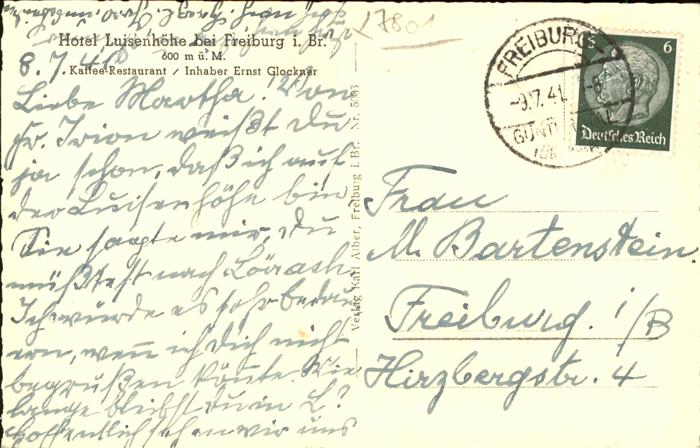 Hotel Luisenhöhe bei Freiburg i. Br.
600 m ü. M.
Kaffee-Restaurant / Inhaber Ernst Glockner
8.7.41
Liebe Martha! Von
Fr. Irion weißt du
ja schon, daß ich auf
der Luisenhöhe bin
Sie sagte mir, du
müßtest nach Lörrach
Ich würde es sehr bedau
ern, wenn ich dich nicht
begrüßen könnte. Wie
lange bleibst du in L?
Hoffentlich sehen wir uns
Verlag Karl Alber, Freiburg i. Br. Nr. 5093
1780
FREIBURG
-9.7.41
6
Deutsches Reich
Frau
M. Bartenstein.
Freiburg. i/B
Hirzbergstr. 4